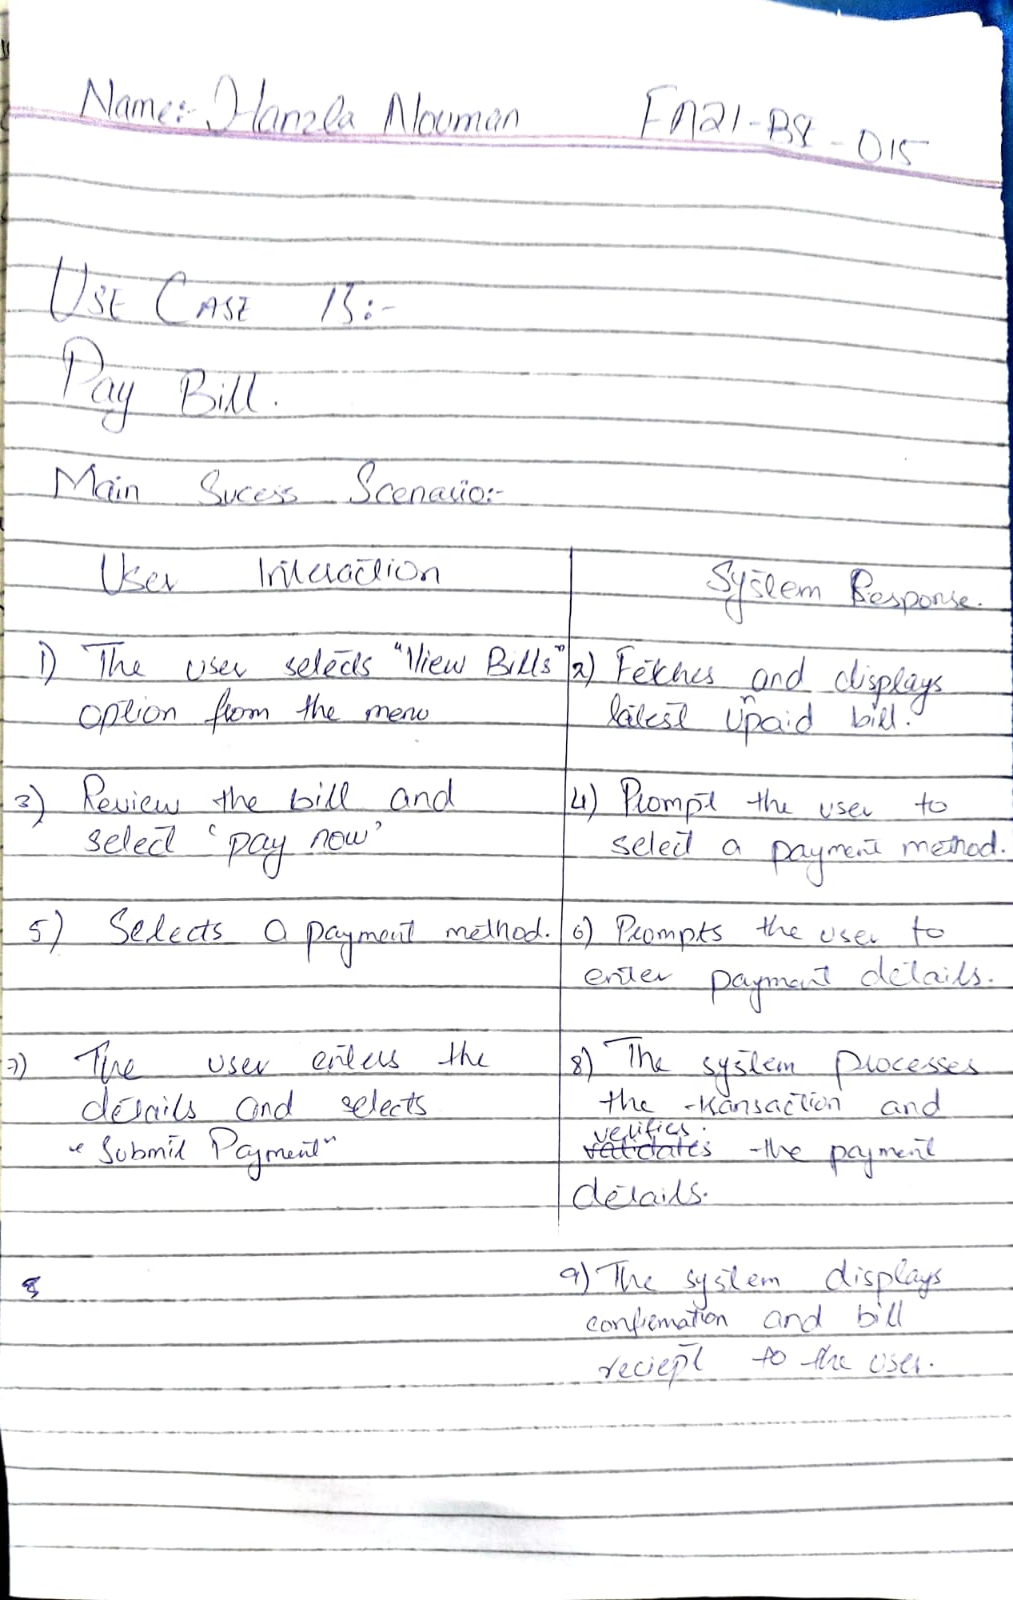 Name:- Hamzla Nouman FA21-BSE-015
USE CASE 13:-
Pay Bill.
Main Sucess Scenario:-
User Interaction
System Response.
1) The user selects "View Bills"
option from the menu
2) Fetches and displays
latest unpaid bill.
3) Review the bill and
select 'pay now'
4) Prompt the user to
select a payment method.
5) Selects a payment method.
6) Prompts the user to
enter payment details.
7) The user enters the
details and selects
"Submit Payment"
8) The system processes
the transaction and
verifies
validates the payment
details.
8
9) The system displays
confirmation and bill
reciept to the user.